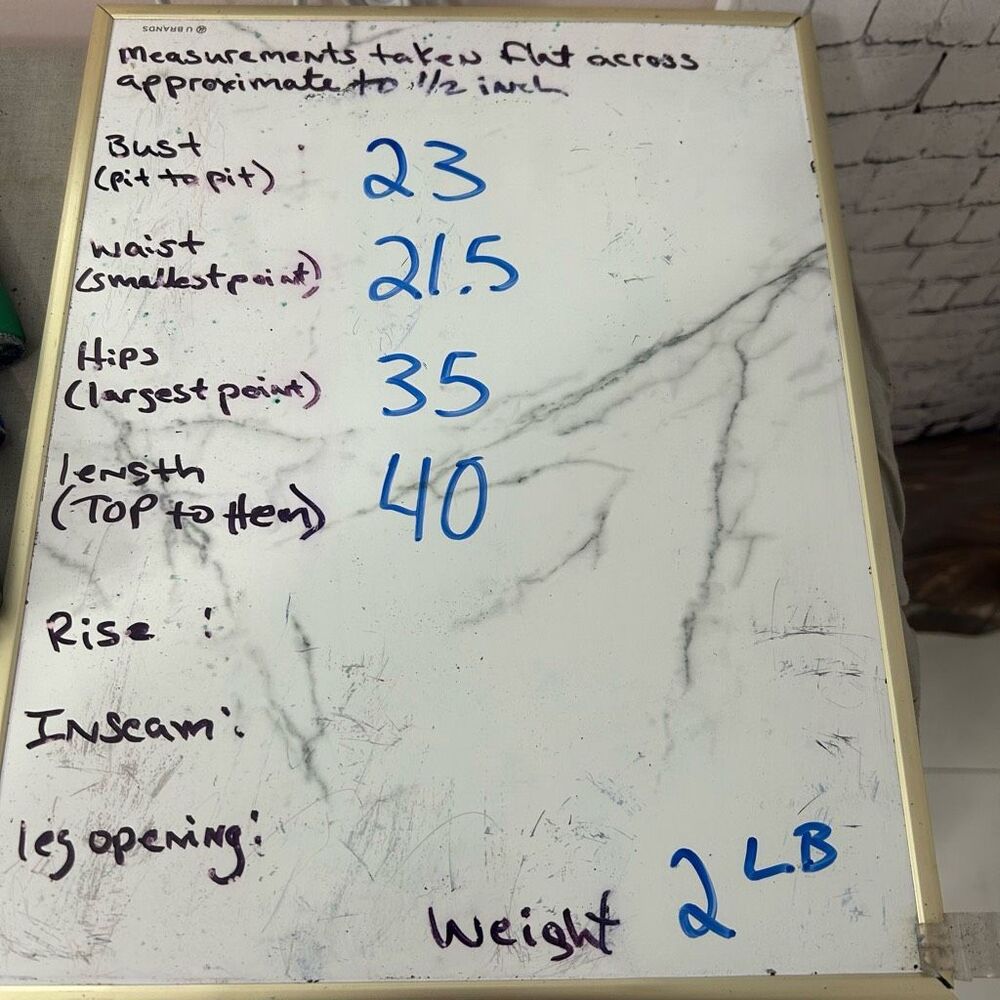 U BRANDS
Measurements taken flat across
approximate to 1/2 inch
Bust : 23
(pit to pit)
Waist 21.5
(smallest point)
Hips 35
(largest point)
length 40
(TOP to Hem)
Rise :
Inseam :
leg opening :
Weight 2 LB